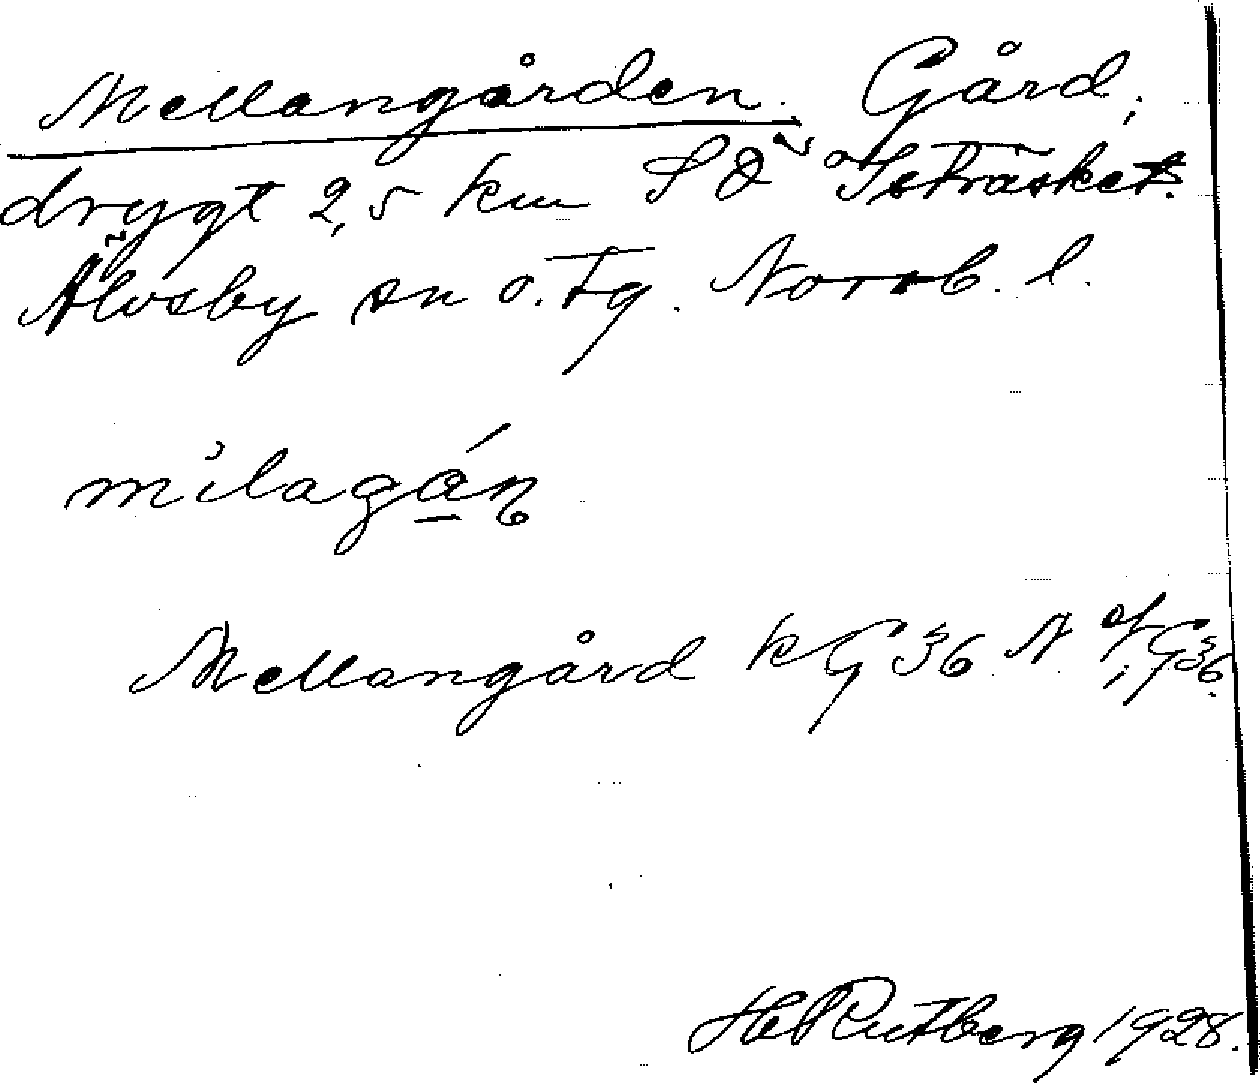 Mellangården. Gård,
drygt 2,5 km SO Isträsket.
Älvsby sn o. tg. Norrb. l.
milagan
Mellangård k G 36 N
H Rutberg 1928.